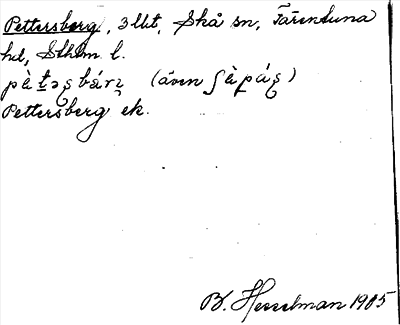 Pettersberg, 3 lht, Skå sn, Färentuna
hd, Sthlm l.
(även
Pettersberg ek.
B. Hesselman 1905